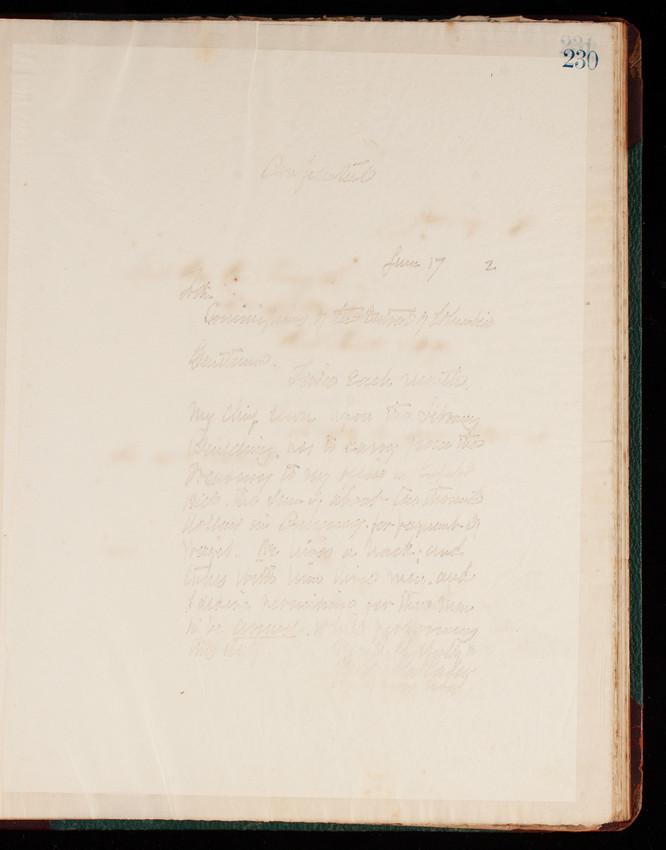 230
Confidential
June 17 2
To the
Commissioners of the District of Columbia
Gentlemen.
Twice each month
my chief clerk upon the Library
Building, has to carry from the
Treasury to my office in
the sum of about ten thousand
dollars in Currency, for payment of
wages. He hires a hack, and
takes with him three men, and
I desire permission for these men
to be armed, while performing
this duty